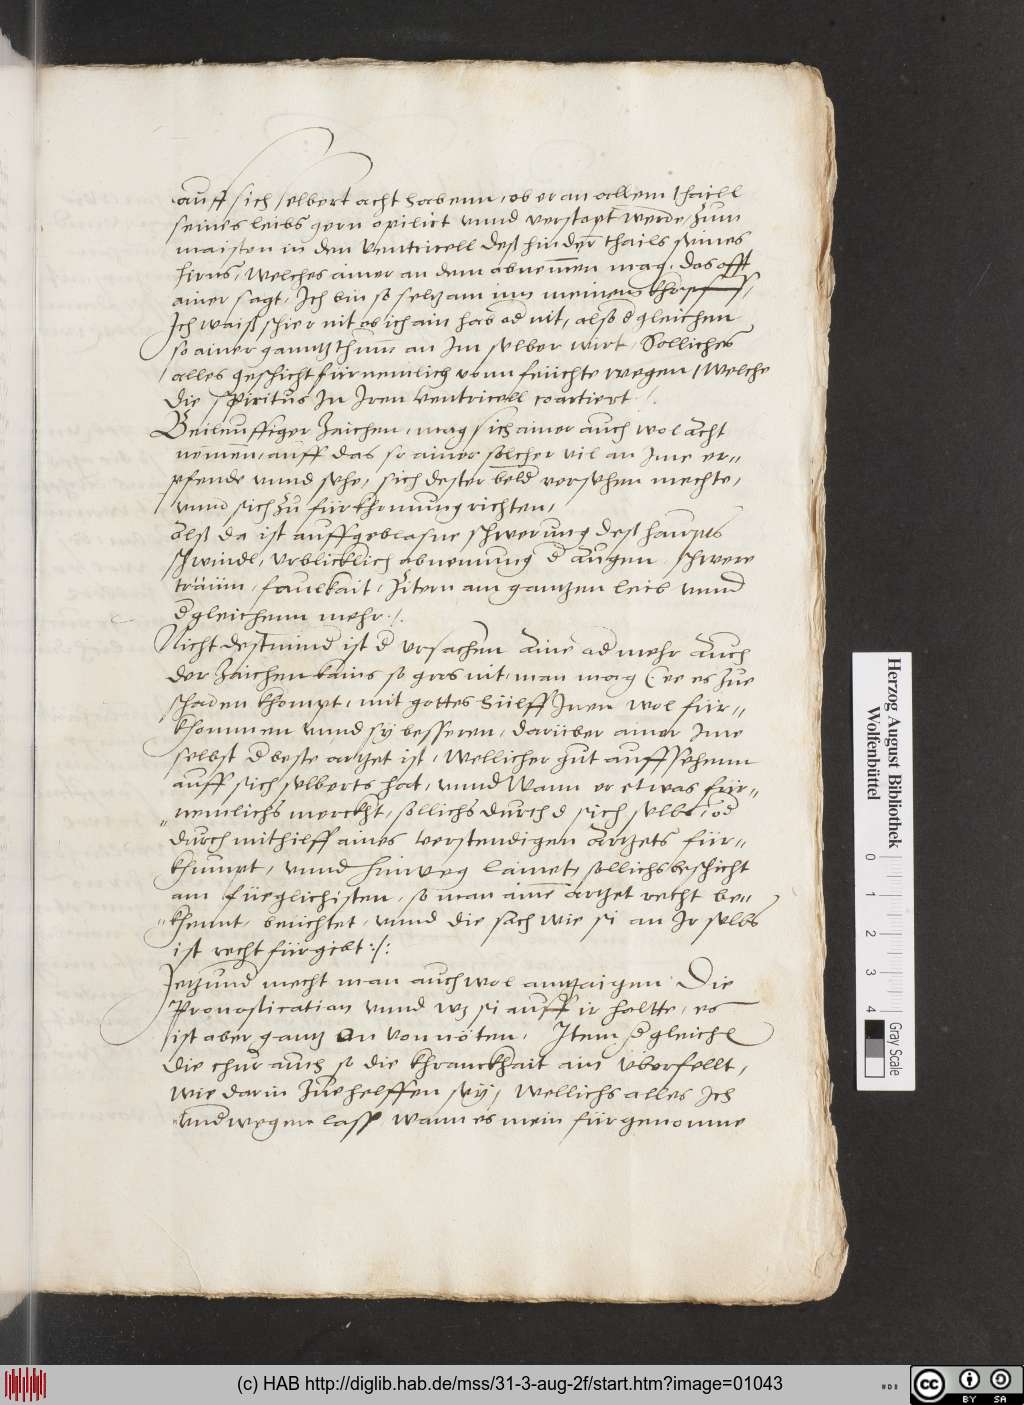 auff sich selbert acht habenn, ob er an allem thaill
seines leibs gern opilirt vnnd verstopt werde, zum
maisten in den Ventricell deß hindern thails seines
hirns, Welches ainer an dem abnemmen mag, das offt
ainer sagt, Ich bin so selzam inn meinem khopf,
Ich waiß schier nit ob ich ain hab od nit, also d gleichen
so ainer ganntz thum an Im selber wirt, Solliches
alles geschicht fürnemlich vonn feüchte wegen, Welche
die Spiritus In Iren Ventricell coartiert
Beileuffiger Zaichen, mag sich ainer auch wol acht
nemen, auff das so ainer solcher vil an Ime er-
pfende vnnd sehe, sich dester beld versehen mechte,
vnnd sich zu fürkhomung richten,
Alß da ist auffgeblasne schwerung deß haupts
schwindl, Vrblicklich abnemung d Augen, schwere
träum, faulkait, Zitern am gantzen leib vnnd
dgleichenn mehr ./.
Nicht destmind ist d Vrsachen Aine od mehr Auch
der Zaichen kains so gros nit, man mag (ee es zue
schaden khompt, mit gottes hülff Inen wol für-
khommen vnnd sy besseren, darüber ainer Ime
selbst d beste artzet ist, Wellicher gut auffsehenn
auff sich selberts hat, vnnd Wann er etwas für-
nemlichs merckht, sollichs durch d sich selbs, od
durch mithilff aines verstendigen Artzets für-
khumpt, vnnd hinweg lainet, sollichs beschicht
am füeglichisten, so man aine artzet recht be-
khennt, beuichtet, vnnd die sach wie si an Ir selbs
ist recht fürgibt :/:
Jetzund mecht man auch wol antzaigen Die
Pronostication vnnd wz si auff ir heltte, es
ist aber gantz on von nöten, Item dgleich
die chur auch so die khranckhait ain Überfellt,
wie darin zue helffen sey, Wellichs alles Ich
vnd wegen lass, wann es mein fürgenomme
Herzog August Bibliothek
Wolfenbüttel
0 1 2 3 4
Gray Scale
(c) HAB http://diglib.hab.de/mss/31-3-aug-2f/start.htm?image=01043
cc BY SA